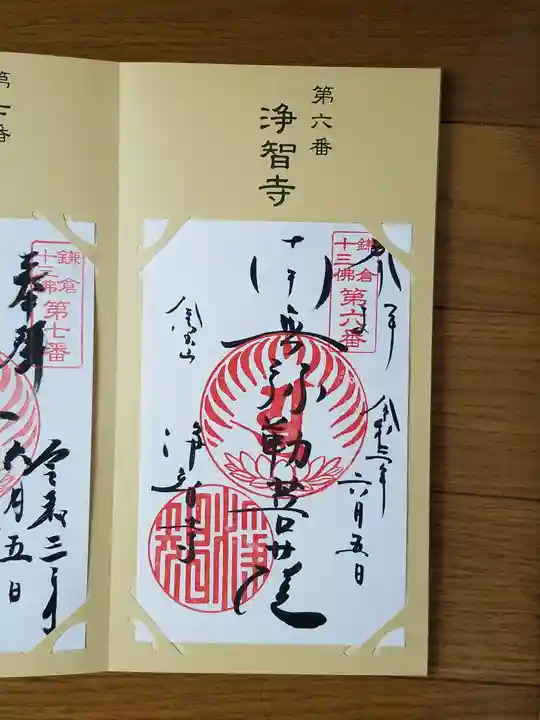 第六番
浄智寺
鎌倉
十三佛
第六番
奉拝
令和三年
六月五日
弥勒菩薩
金宝山
浄智寺
第七番
鎌倉
十三佛
第七番
奉拝
令和三年
六月五日